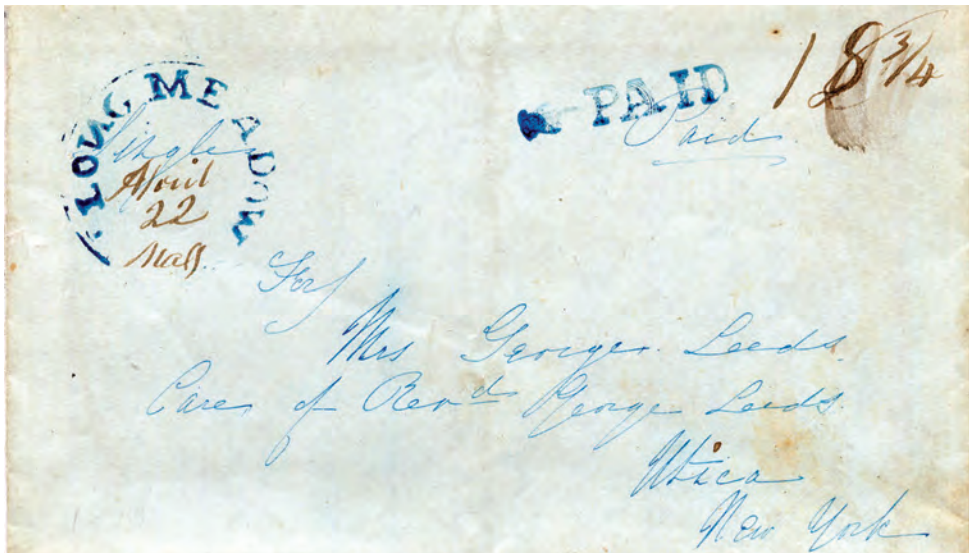 LONGMEADOW
Single
April
22
Mass.
PAID
Paid
18 3/4
For
Mrs George Leeds.
Care of Revd George Leeds.
Utica
New York